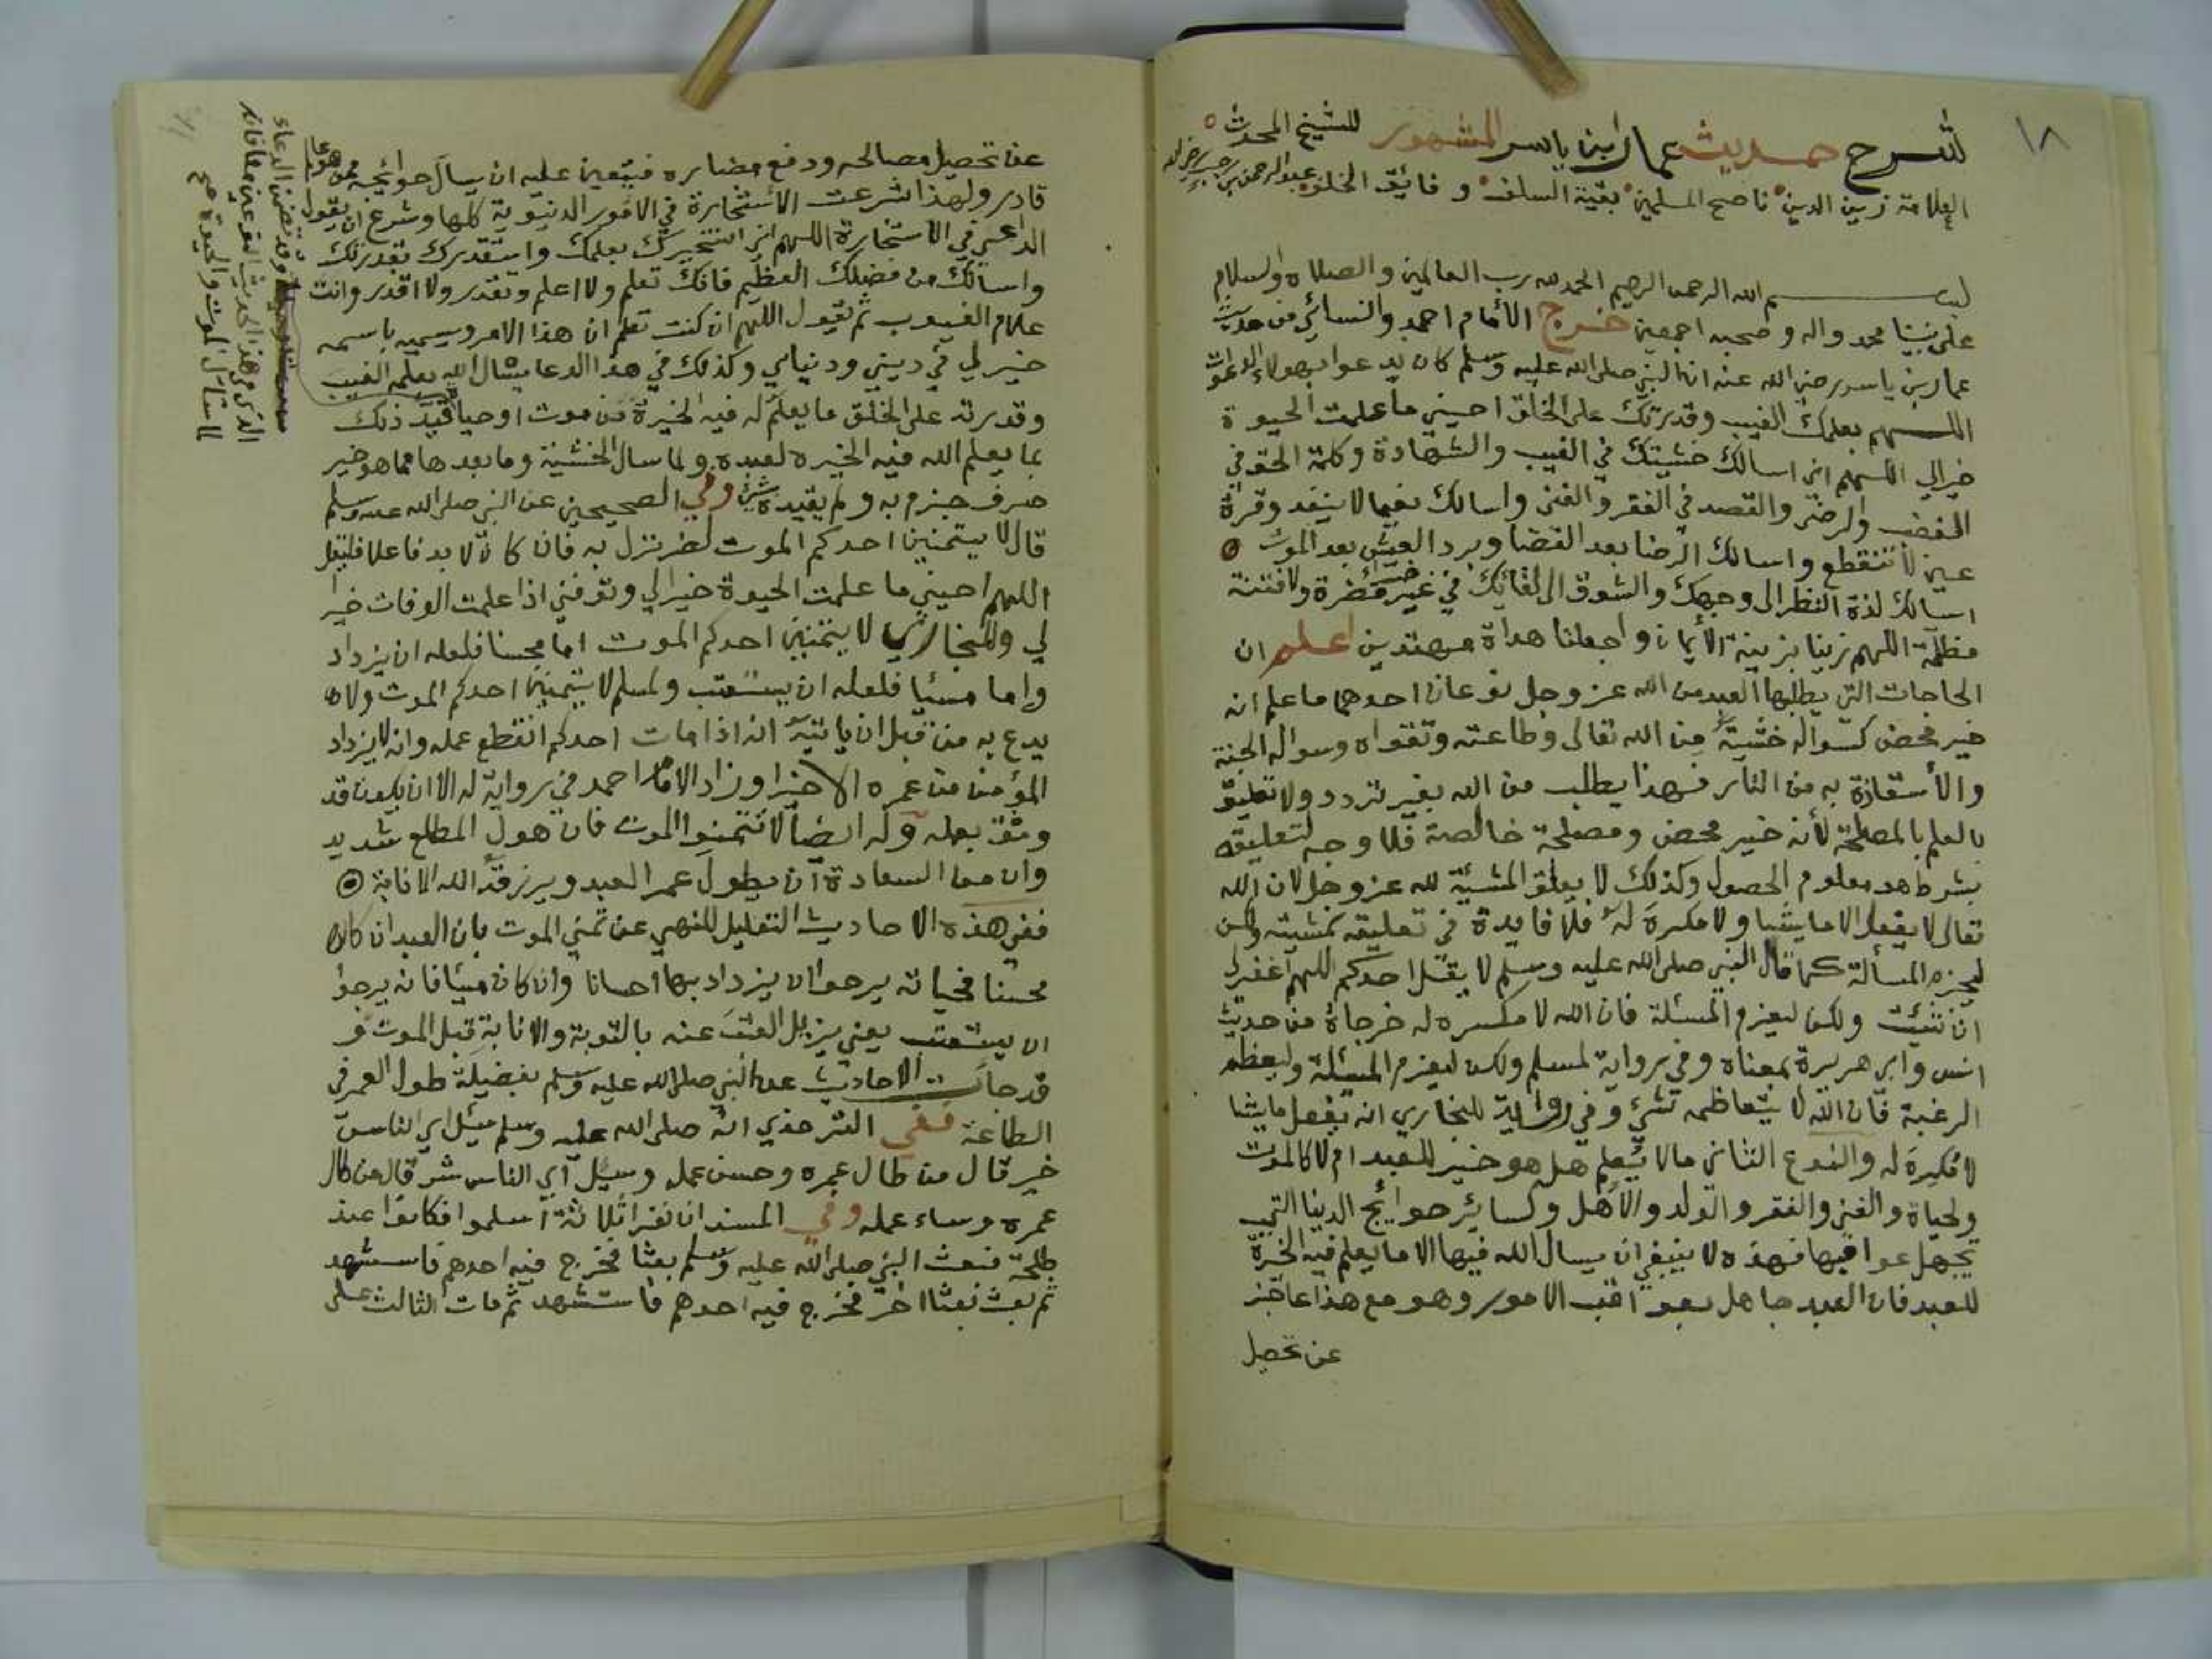 ١٨
لشرح حديث عمار ابن ياسر المشهور للشيخ المحدث
العلامة زين الدين ناصح المسلمين بقية السلف وفايق الخلف عبد الرحمن بن رجب رحمه الله
بسم الله الرحمن الرحيم الحمد لله رب العالمين والصلاة والسلام
على نبينا محمد واله وصحبه اجمعين خرج الأمام احمد والنسائي من حديث
عمار بن ياسر رضي الله عنه ان النبي صلى الله عليه وسلم كان يدعوا بهولاء الدعوات
اللهم بعلمك الغيب وقدرتك على الخلق احيني ما علمت الحيوة
خيرا لي اللهم اني اسالك خشيتك في الغيب والشهادة وكلمة الحق في
الغضب والرضى والقصد في الفقر والغنى واسالك نعيما لا ينفد وقرة
عين لا تنقطع واسالك الرضا بعد القضا وبرد العيش بعد الموت
اسالك لذة النظر الى وجهك والشوق الى لقائك في غير ضراء مضرة ولا فتنة
مظلمة اللهم زينا بزينة الأيمان واجعلنا هداة مهتدين اعلم ان
الحاجات التي يطلبها العبد من الله عز وجل نوعان احدهما ما علم انه
خير محض كسواله خشيته من الله تعالى وطاعته وتقواه وسواله الجنة
والأستعاذة به من النار فهذا يطلب من الله بغير تردد ولا تعليق
بالعلم بالمصلحة لأنه خير محض ومصلحة خالصة فلا وجه لتعليقه
بشرط هو معلوم الحصول وكذلك لا يعلق المشيئة لله عز وجل لان الله
تعالى لا يفعل الا ما يشا ولا مكره له فلا فايدة في تعليقه بمشيته ولكن
ليجزم المسألة كما قال النبي صلى الله عليه وسلم لا يقل احدكم اللهم اغفر لي
ان شئت ولكن ليعزم المسئلة فان الله لا مكره له خرجاه من حديث
انس وابي هريرة بمعناه وفي رواية لمسلم ولكن ليعزم المسئلة وليعظم
الرغبة فان الله لا يتعاظمه شئ وفي رواية للبخاري انه يفعل ما يشا
لا مكره له والنوع الثاني ما لا يعلم هل هو خير للعبد ام لا كالموت
ولحياة والغنى والفقر والولد والأهل وكسائر حوايج الدينا التي
يجهل عواقبها فهذه لا ينبغي ان يسال الله فيها الا ما يعلم فيه الخيرة
للعبد فان العبد جاهل بعواقب الامور وهو مع هذا عاجز
عن تحصيل
عن تحصيل مصالحه ودفع مضاره فيتعين عليه ان يسال حوائجه ممن هو
قادر ولهذا شرعت الأستخارة في الامور الدنيوية كلها وشرع ان يقول
الداعي في الاستخارة اللهم اني استخيرك بعلمك واستقدرك بقدرتك
واسالك من فضلك العظيم فانك تعلم ولا اعلم وتقدر ولا اقدر وانت
علام الغيوب ثم تقول اللهم ان كنت تعلم ان هذا الامر ويسميه باسمه
خير لي في ديني ودنياي وكذلك في هذا الدعا يسال الله بعلمه الغيب
وقدرته على الخلق ما يعلم له فيه الخيرة من موت او حياة قيد ذلك
بما يعلم الله فيه الخيره لعبده ولما سال الخشية وما بعدها مما هو خير
صرف جزم به ولم يقيده بشئ وفي الصحيحين عن النبي صلى الله عليه وسلم
قال لا يتمنين احدكم الموت لضر نزل به فان كان لا بد فاعلا فليقل
اللهم احيني ما علمت الحيوة خيرا لي وتوفني اذا علمت الوفات خيرا
لي وللبخاري لا يتمنين احدكم الموت اما محسنا فلعله ان يزداد
وإما مسئيا فلعله ان يستعتب ولمسلم لا يتمنين احدكم الموت ولا
يدع به من قبل ان ياتيه انه اذا مات احدكم انقطع عمله وانه لا يزداد
المؤمن من عمره الا خيرا وزاد الامام احمد في رواية له الا ان يكون قد
وثق بعمله وله ايضا لا تتمنوا الموت فان هول المطلع شديد
وان من السعادة ان يطول عمر العبد ويرزقه الله الانابة
ففي هذه الاحاديث التعليل للنهي عن تمني الموت بان العبد ان كان
محسنا فحياته يرجوا ان يزداد بها احسانا وان كان مسئا فانه يرجوا
ان يستعتب يعني يزيل العتب عنه بالتوبة والانابة قبل الموت و
قد جات الاحاديث عن النبي صلى الله عليه وسلم بفضيلة طول العمر في
الطاعة ففي الترمذي انه صلى الله عليه وسلم سئل اي الناس
خير قال من طال عمره وحسن عمله وسيل اي الناس شر قال من طال
عمره وساء عمله وفي المسند ان نفرا ثلاثة اسلموا فكانوا عند
طلحة فبعث النبي صلى الله عليه وسلم بعثا فخرج فيه احدهم فاستشهد
ثم بعث بعثا اخر فخرج فيه احدهم فاستشهد ثم مات الثالث على
وقد تضمن الدعاء
الذي في هذا الحديث النوعين معا فانه
لما سأل الموت والحيوة صح